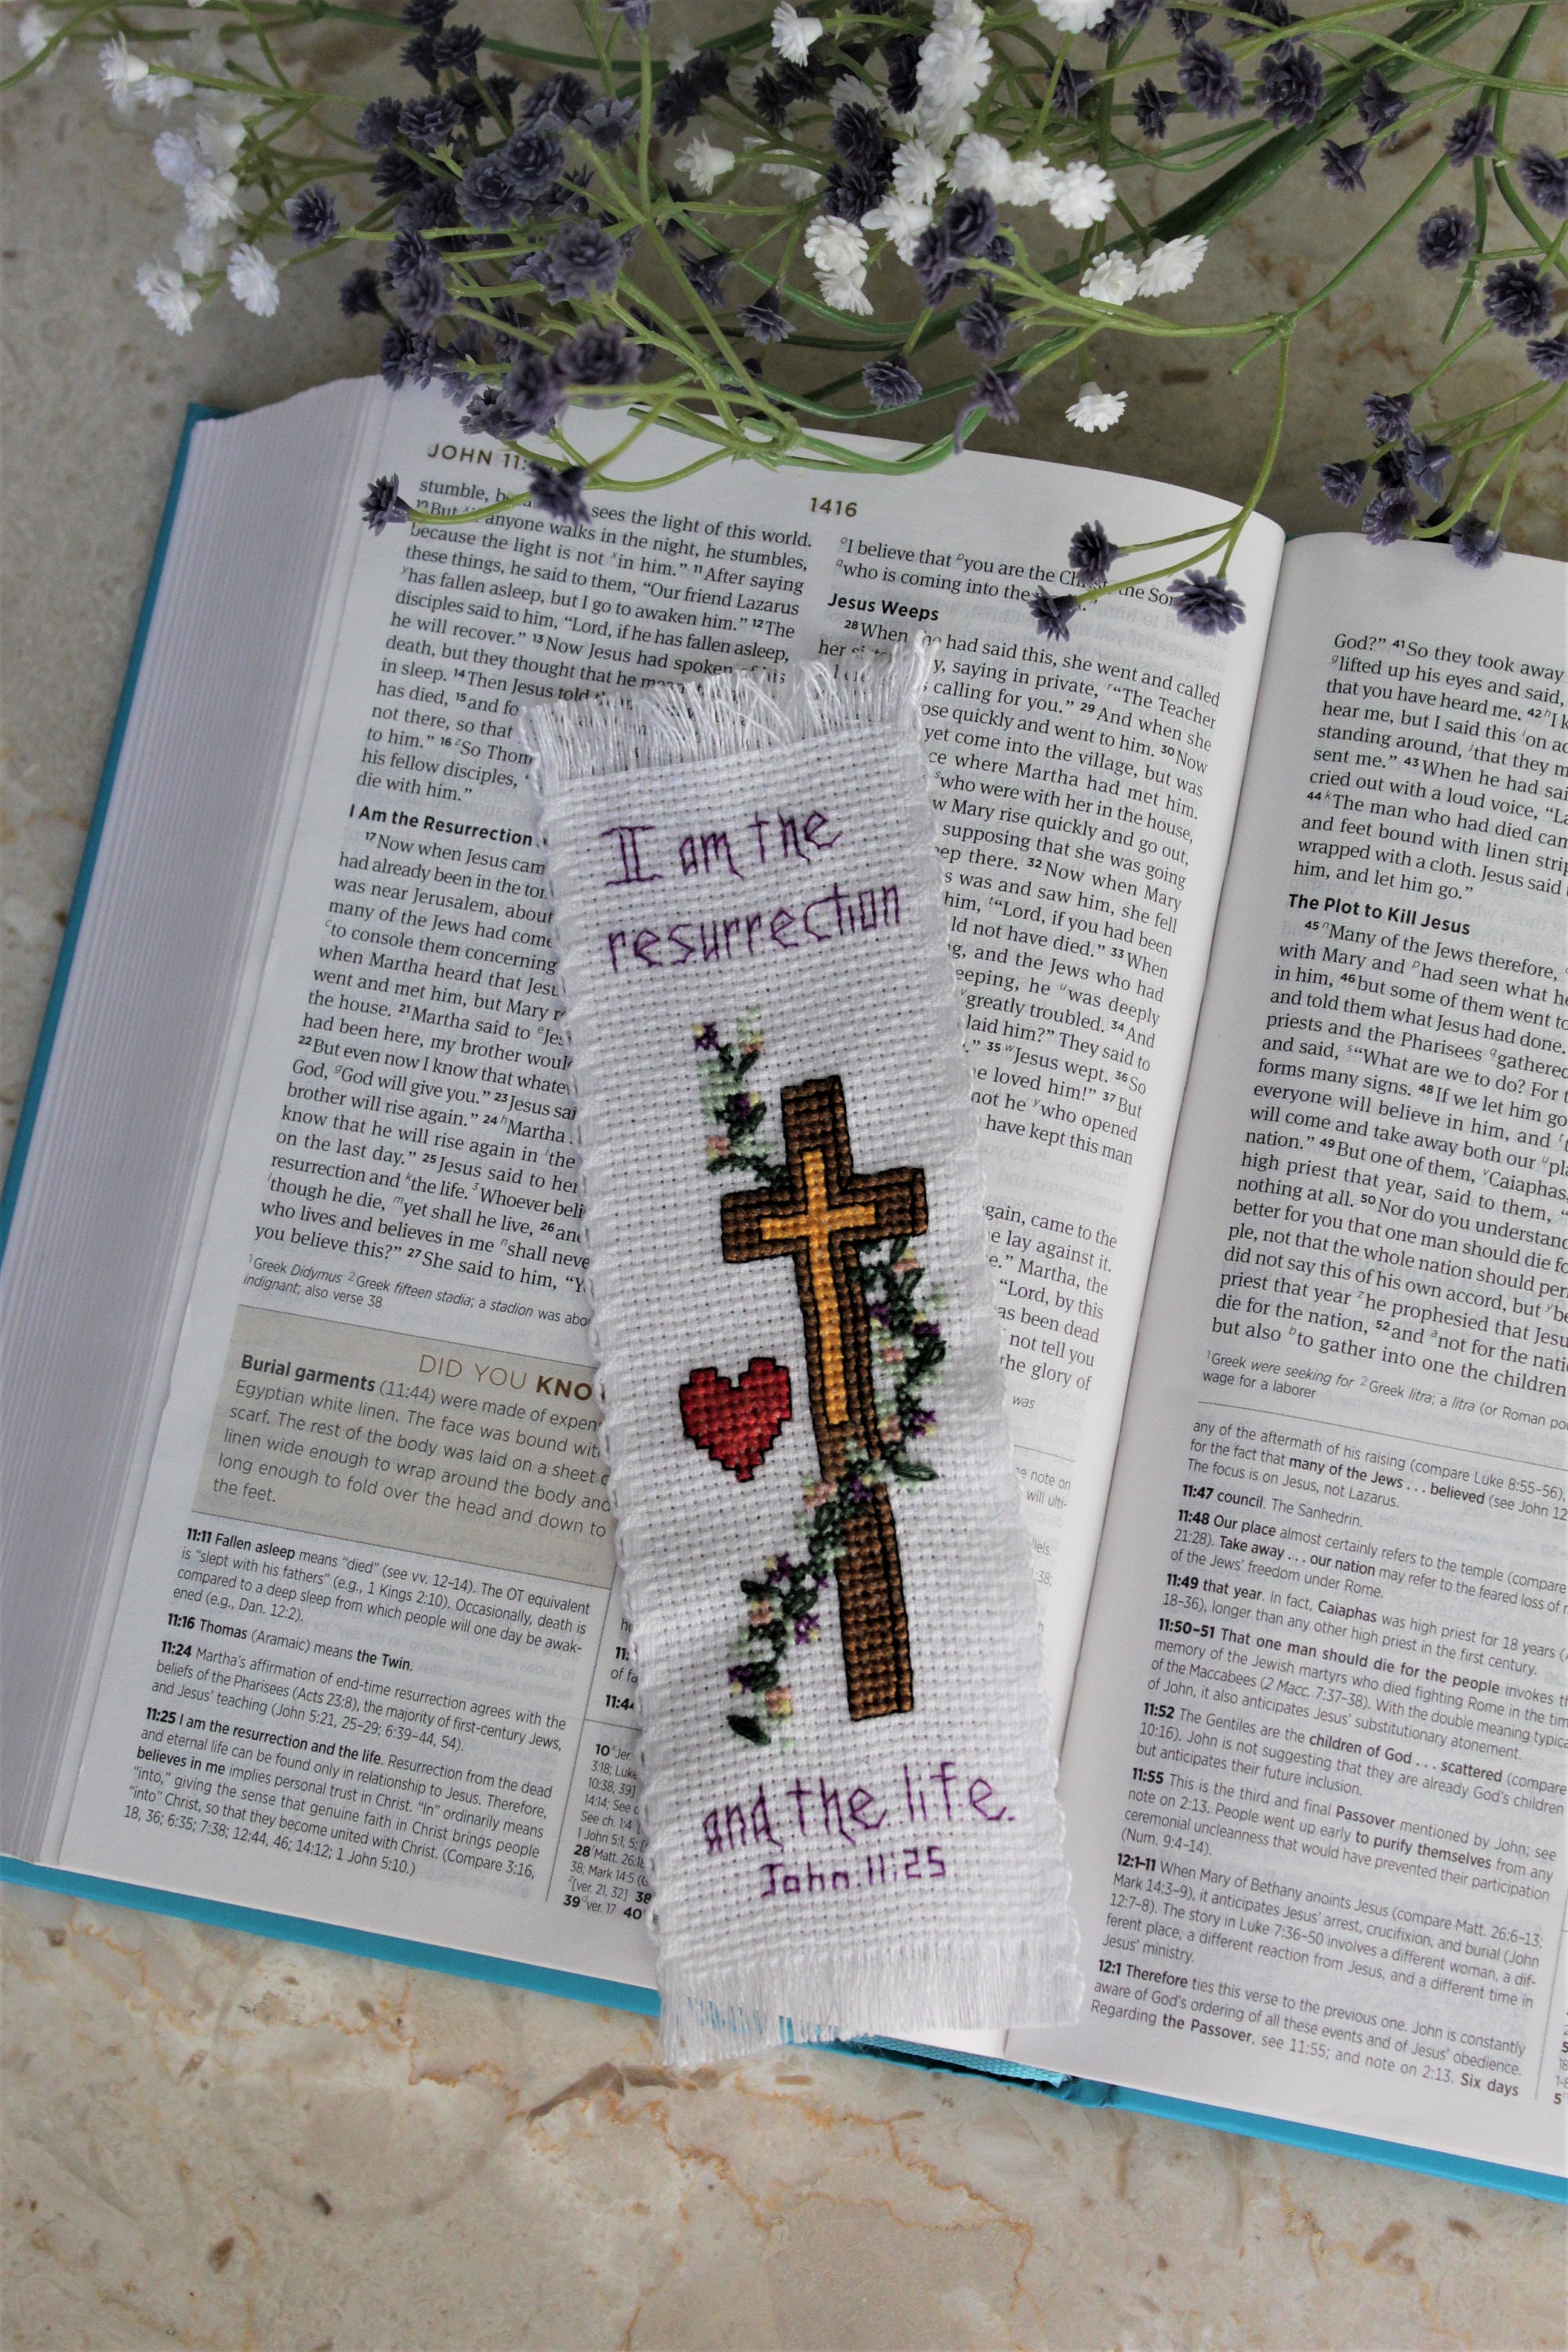 JOHN 11:
1416
stumble, sees the light of this world.
But anyone walks in the night, he stumbles,
because the light is not ˣin him." ¹¹After saying
these things, he said to them, "Our friend Lazarus
ʸhas fallen asleep, but I go to awaken him." ¹²The
disciples said to him, "Lord, if he has fallen asleep,
he will recover." ¹³Now Jesus had spoken of his
death, but they thought that he
in sleep. ¹⁴Then Jesus told
has died, ¹⁵and
not there, so that
to him." ¹⁶ᶻSo
his fellow disciples,
die with him."
I Am the Resurrection
¹⁷Now when Jesus
had already been in the
was near Jerusalem, about
many of the Jews had come
ᶜto console them concerning
when Martha heard that
went and met him, but Mary
the house. ²¹Martha said to
had been here, my brother
²²But even now I know that
God, ᵍGod will give you." ²³Jesus
brother will rise again." ²⁴ʰMartha
know that he will rise again in ⁱthe
on the last day." ²⁵Jesus said to her
resurrection and ᵏthe life. ³Whoever
ˡthough he die, ᵐyet shall he live, ²⁶
who lives and believes in me ⁿshall
you believe this?" ²⁷She said to him,
¹Greek Didymus ²Greek fifteen stadia; a stadion was
indignant; also verse 38
DID YOU
Burial garments (11:44) were made of
Egyptian white linen. The face was bound
scarf. The rest of the body was laid on a sheet
linen wide enough to wrap around the body and
long enough to fold over the head and down to
the feet.
11:11 Fallen asleep means "died" (see vv. 12–14). The OT equivalent
is "slept with his fathers" (e.g., 1 Kings 2:10). Occasionally, death is
compared to a deep sleep from which people will one day be awak-
ened (e.g., Dan. 12:2).
11:16 Thomas (Aramaic) means the Twin.
11:24 Martha's affirmation of end-time resurrection agrees with the
beliefs of the Pharisees (Acts 23:8), the majority of first-century Jews,
and Jesus' teaching (John 5:21, 25–29; 6:39–44, 54).
11:25 I am the resurrection and the life. Resurrection from the dead
and eternal life can be found only in relationship to Jesus. Therefore,
believes in me implies personal trust in Christ. "In" ordinarily means
"into," giving the sense that genuine faith in Christ brings people
"into" Christ, so that they become united with Christ. (Compare 3:16,
18, 36; 6:35; 7:38; 12:44, 46; 14:12; 1 John 5:10.)
3:18; Luke
10:38, 39]
14:14; See
See ch. 1:4
1 John 5:1, 5;
28 Matt. 26:18
38; Mark 14:5
[ver. 21, 32] 38
39 ver. 17 40
I am the
resurrection
and the life.
John.11:25
ᵒI believe that ᵖyou are the the
ᑫwho is coming into the
Jesus Weeps
²⁸When had said this, she went and called
her saying in private, ʳ"The Teacher
calling for you." ²⁹And when she
quickly and went to him. ³⁰Now
yet come into the village, but was
where Martha had met him.
ˢwho were with her in the house,
Mary rise quickly and go out,
supposing that she was going
there. ³²Now when Mary
was and saw him, she fell
him, ᵗ"Lord, if you had been
not have died." ³³When
and the Jews who had
he ᵘwas deeply
ᵛgreatly troubled. ³⁴And
laid him?" They said to
³⁵ʷJesus wept. ³⁶So
he loved him!" ³⁷But
not he ʸwho opened
have kept this man
came to the
lay against it.
Martha, the
"Lord, by this
been dead
not tell you
the glory of
was
note on
will
God?" ⁴¹So they took away
ᵍlifted up his eyes and said,
that you have heard me. ⁴²ʰI
hear me, but I said this ⁱon
standing around, ʲthat they
sent me." ⁴³When he had
cried out with a loud voice,
⁴⁴ᵏThe man who had died
and feet bound with linen
wrapped with a cloth. Jesus said
him, and let him go."
The Plot to Kill Jesus
⁴⁵ⁿMany of the Jews therefore,
with Mary and ᵖhad seen what
in him, ⁴⁶but some of them went
and told them what Jesus had done.
priests and the Pharisees ᑫgathered
and said, ˢ"What are we to do? For
forms many signs. ⁴⁸If we let him go
everyone will believe in him, and
will come and take away both our
nation." ⁴⁹But one of them, ᵛCaiaphas,
high priest that year, said to them,
nothing at all. ⁵⁰Nor do you understand
better for you that one man should die
ple, not that the whole nation should
did not say this of his own accord, but
priest that year ᶻhe prophesied that
die for the nation, ⁵²and ᵃnot for the
but also ᵇto gather into one the children
¹Greek were seeking for ²Greek litra; a litra (or Roman
wage for a laborer
any of the aftermath of his raising (compare Luke 8:55–56),
for the fact that many of the Jews . . . believed (see John
The focus is on Jesus, not Lazarus.
11:47 council. The Sanhedrin.
11:48 Our place almost certainly refers to the temple (compare
21:28). Take away . . . our nation may refer to the feared loss of
of the Jews' freedom under Rome.
11:49 that year. In fact, Caiaphas was high priest for 18 years
18–36), longer than any other high priest in the first century.
11:50–51 That one man should die for the people invokes
memory of the Jewish martyrs who died fighting Rome in the
of the Maccabees (2 Macc. 7:37–38). With the double meaning
of John, it also anticipates Jesus' substitutionary atonement.
11:52 The Gentiles are the children of God . . . scattered (compare
10:16). John is not suggesting that they are already God's children
but anticipates their future inclusion.
11:55 This is the third and final Passover mentioned by John; see
note on 2:13. People went up early to purify themselves from any
ceremonial uncleanness that would have prevented their participation
(Num. 9:4–14).
12:1–11 When Mary of Bethany anoints Jesus (compare Matt. 26:6–13;
Mark 14:3–9), it anticipates Jesus' arrest, crucifixion, and burial (John
12:7–8). The story in Luke 7:36–50 involves a different woman, a dif-
ferent place, a different reaction from Jesus, and a different time in
Jesus' ministry.
12:1 Therefore ties this verse to the previous one. John is constantly
aware of God's ordering of all these events and of Jesus' obedience.
Regarding the Passover, see 11:55; and note on 2:13. Six days